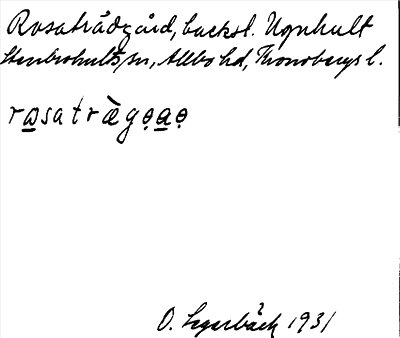 Rosaträdgård, backsl. Ugnhult
Stenbrohults sn, Allbo hd, Kronobergs l.
rɷsatræ̀gə̣a̱ə̣
O. Segerbäck 1931